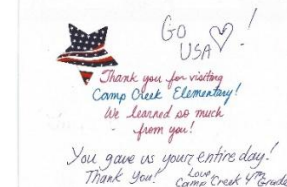 Go
USA ♡!
Thank you for visiting
Camp Creek Elementary!
We learned so much
from you!
You gave us your entire day!
Thank You!
Love,
Camp Creek 4th Grade